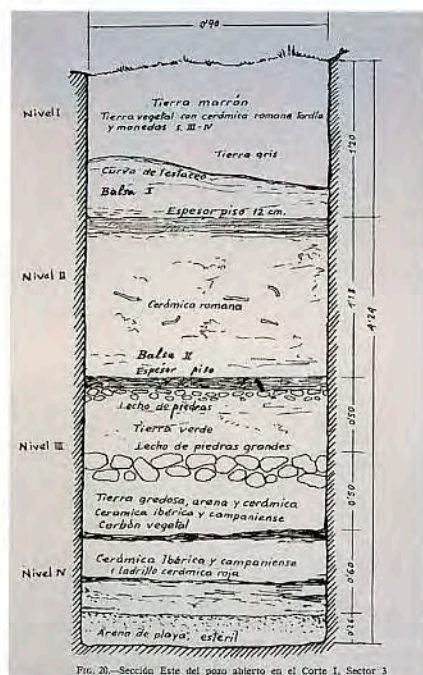 0'90
Nivel I
Tierra marrón
Tierra vegetal con cerámica romana tardía
y monedas s. III-IV
Tierra gris
Curva de testaceo
Balsa I
Espesor piso 12 cm.
1'20
Nivel II
Cerámica romana
Balsa II
Espesor piso
1'18
4'24
Lecho de piedras
Tierra verde
Lecho de piedras grandes
0'50
Nivel III
Tierra gredosa, arena y cerámica
Ceramica ibérica y campaniense
Carbón vegetal
0'50
Nivel IV
Cerámica Ibérica y campaniense
ladrillo cerámica roja
0'60
Arena de playa, estéril
FIG. 20.—Sección Este del pozo abierto en el Corte I, Sector 3